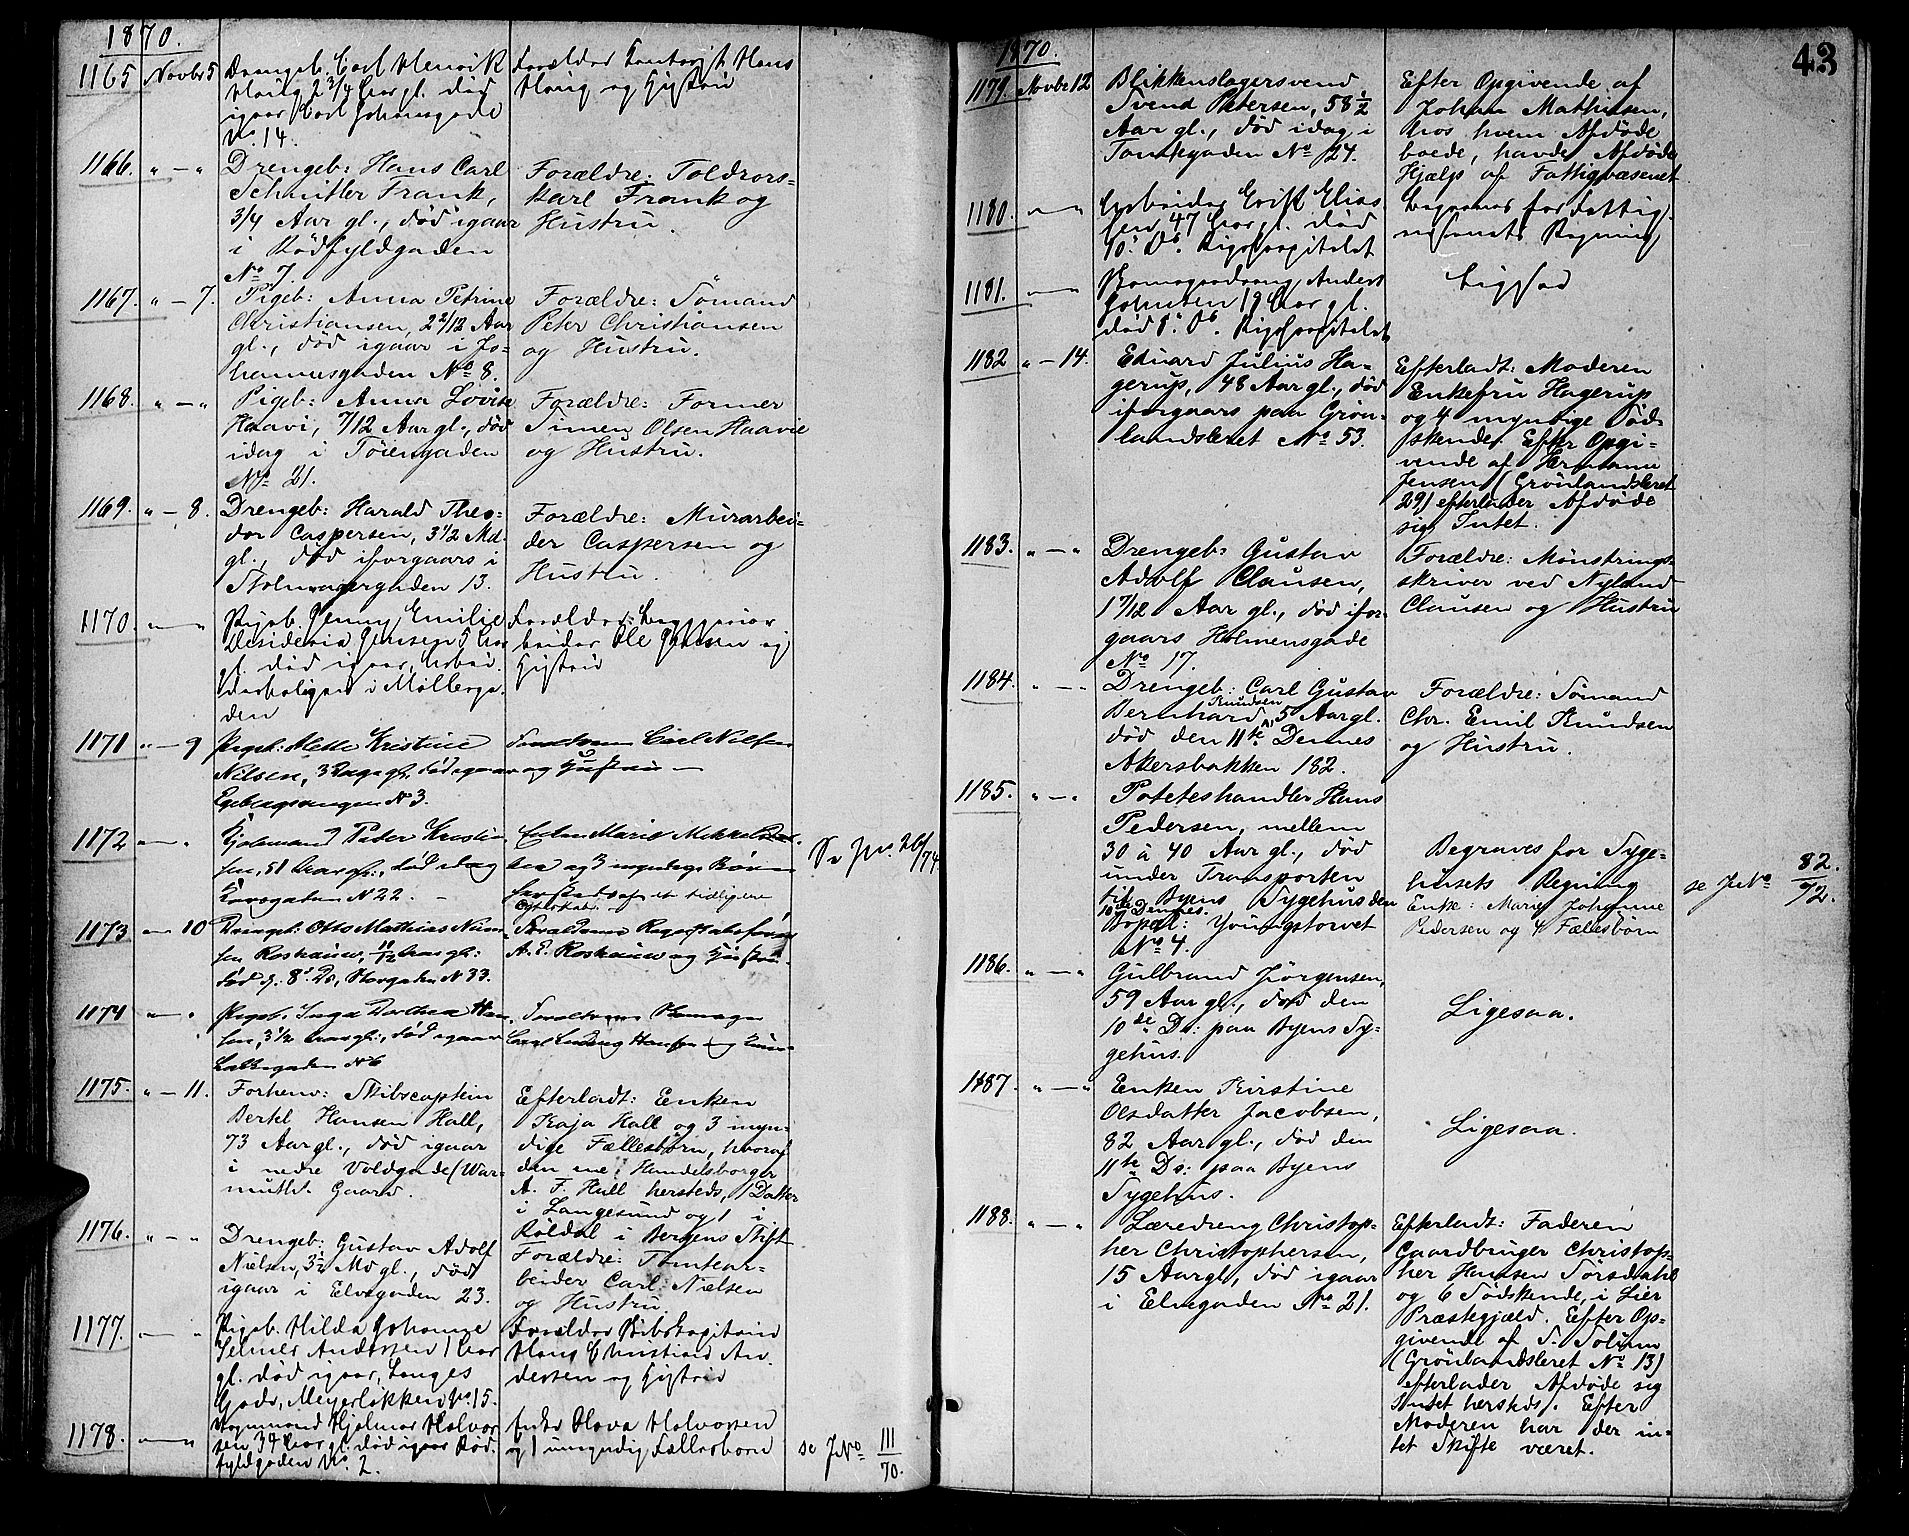 1870.
1165 Novbr 5 Drengeb. Carl Henrik
Haug 2 3/4 Aar gl. død
igaar Carl Johansgade
No. 14.
Forældre Hans
Haug og Hustru
1166. " — " Drengeb: Hans Carl
Schnitler Frank,
3/4 Aar gl., død igaar
i Rødfyldgaden
No 7.
Forældre: Toldrors-
karl Frank og
Hustru.
1167. " — 7. Pigeb: Anna Petrine
Christiansen, 2 2/12 Aar
gl., død igaar i Jo-
hannesgaden No 8.
Forældre: Sømand
Peter Christiansen
og Hustru.
1168. " — " Pigeb: Anna Lovise
Haavi, 7/12 Aar gl., død
idag i Tøiengaden
No 21.
Forældre: Former
Simen Olsen Haavie
og Hustru.
1169. " — 8. Drengeb: Harald Theo-
dor Caspersen, 3 1/2 Md.
gl., død iforgaars i
Stolmagergaden 13.
Forældre: Murarbei-
der Caspersen og
Hustru.
1170. — " Pigeb. Jenny Emilie
Desideria Jensen 5 Aar
gl. død igaar, Arbei-
derboligen i Møllerga-
den
Forældre:
beider Ole Jensen og
Hustru
1171 " — 9 Pigeb: Mette Kristine
Nilsen, 3 Dage gl, død igaar
Egebergsvangen N 3.
Forældrene Carl Nilsen
og Hustru —
1172 — " Peder Kristian-
sen, 51 Aar gl:, død idag
N 22. —
Enken Marie
og 3 myndige Børn
tidligere
Ægteskab.
Se Jno 26/74
1173 — 10 Drengeb: Otto Mathias
Roshauw, 11/12 Aar gl:
død d. 8' Ds, Storgaden N 33.
Forældrene
A. E. Roshauw og Hustru.
1174 — " Pigeb. Inga Dorthea Han-
sen, 3 1/2 Aar gl:, død igaar
Lakkegaden N 6
Forældrene
Carl Ludvig Hansen og
1175. " — 11. Forhenv: Skibscaptein
Bertel Hansen Hall,
73 Aar gl., død igaar
i nedre Voldgade (War-
muths Gaard.
Efterladt: Enken
Kaja Hall og 3 myn-
dige Fællesbørn, hvoraf
den ene, Handelsborger
A. F. Hall hersteds, 1 Datter
i Langesund og 1 i
Røldal i Bergens Stift
1176. " — " Drengeb: Gustav Adolf
Nielsen, 3 1/2 Md gl., død
igaar i Elvegaden 23.
Forældre: Tomtear-
beider Carl Nielsen
og Hustru
1177. — " Pigeb. Hilda Johanne
Selmer Andersen 1 Aar
gl. død igaar, Langes
Gade, Meyerløkken No. 15.
Forældre Skibskaptein
Hans Christian An-
dersen og Hustru
1178. — " Hjelmar Halvor-
sen 34 Aar gl. død igaar Rød-
fyldgaden No. 2.
Enke Olava Halvorsen
og 1 umyndig Fællesbarn
se JNo 111/70.
43
1870.
1179. Novbr 12 Blikkenslagersvend
Svend Petersen, 58 1/2
Aar gl., død idag i
Tomtegaden No 24.
Efter Opgivende af
Johan Mathisen,
hos hvem Afdøde
boede, havde Afdøde
Hjælp af Fattigvæsenet
1180. — " Arbeider Erik Elias-
sen 47 Aar gl. død
10' Ds. Rigshospitalet
Begraves for Fattig-
væsenets Regning
1181. — " Anders
Johnsen 19 Aar gl.
død 8' Ds. Rigshospitalet
Ligesaa
1182 " — 14. Eduard Julius Ha-
gerup, 48 Aar gl., død
iforgaars paa Grøn-
landsleret No 53.
Efterladt: Moderen
Enkefru Hagerup
og 4 myndige Sød-
skende. Efter Opgi-
vende af Hermann
Jensen (Grønlandsleret
29) efterlader Afdøde
sig Intet.
1183. " — " Drengeb: Gustav
Adolf Clausen,
1 7/12 Aar gl., død ifor-
gaars Holmensgade
No 17.
Forældre: Mønstrings-
skriver ved Nyland
Clausen og Hustru
1184. " — " Drengeb: Carl Gustav
Bernhard Knudsen, 5 Aar gl.
død den 11te Dennes
Akersbakken 182.
Forældre: Sømand
Chr. Emil Knudsen
og Hustru.
1185. " — " Poteteshandler Hans
Pedersen, mellem
30 à 40 Aar gl., død
under Transporten
til Byens Sygehus den
10de Dennes.
Bopæl: Youngstorvet
No 4.
Begraves for Syge-
husets Regning
Enke: Marie Johanne
Pedersen og 4 Fællesbørn
se JNo 82/72.
1186. " — " Gulbrand Jørgensen,
59 Aar gl., død den
10de Ds: paa Byens Sy-
gehus.
Ligesaa.
1187. " — " Enken Kirstine
Olsdatter Jacobsen,
82 Aar gl., død den
11te Ds: paa Byens
Sygehus.
Ligesaa.
1188. " — " Læredreng Christop-
her Christophersen,
15 Aar gl., død igaar
i Elvegaden No 21.
Efterladt: Faderen
Gaardbruger Christop-
her Hansen Sørsdahl
og 6 Sødskende, i Lier
Præstegjæld. Efter Op-
givende af S. Solum
(Grønlandsleret No 13)
efterlader Afdøde sig
Intet hersteds. Efter
Moderen har der in-
tet Skifte været.